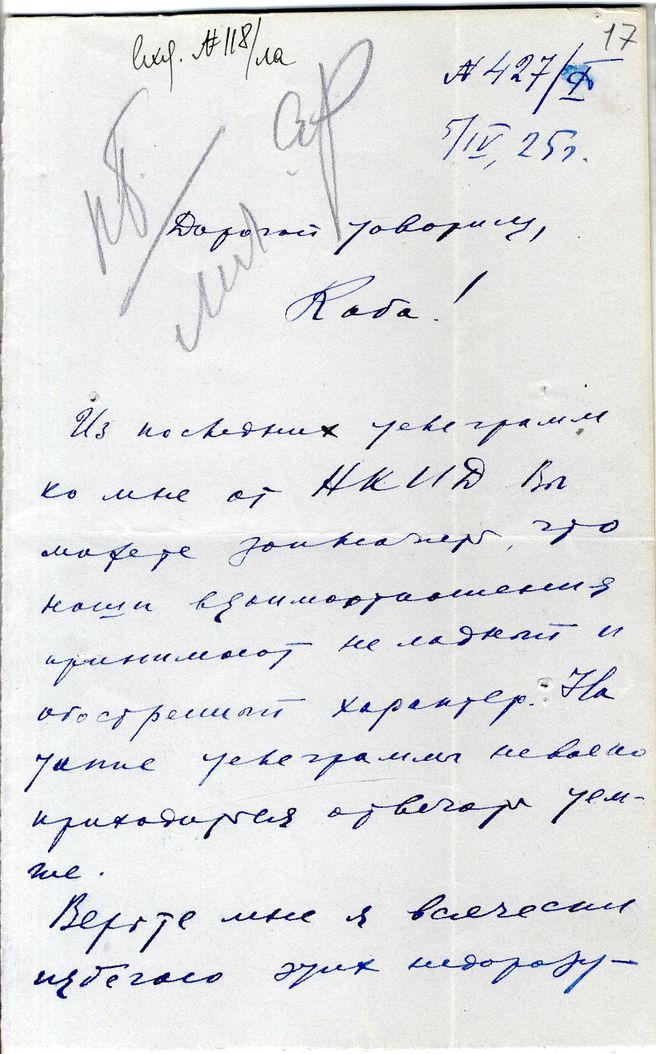 17
вхд. №118/ла
№427/
5/IV, 25г.
Дорогой товарищ,
Коба!
Из последних телеграмм
ко мне от НКИД Вы
можете заключить, что
наши взаимоотношения
принимают не ладный и
обостренный характер. На
такие телеграммы невольно
приходится отвечать тем-
же.
Верьте мне я всячески
избегаю этих недоразу-